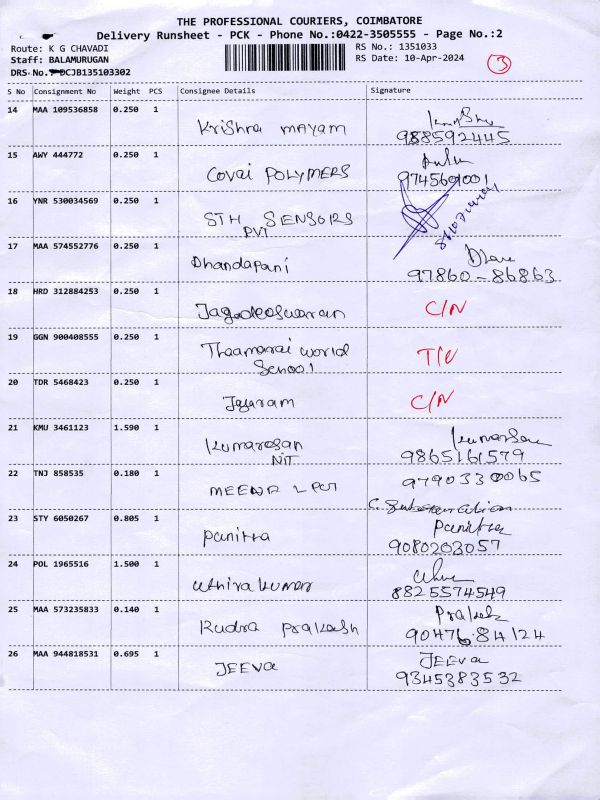 THE PROFESSIONAL COURIERS, COIMBATORE
Delivery Runsheet - PCK - Phone No.:0422-3505555 - Page No.:2
Route: K G CHAVADI RS No.: 1351033
Staff: BALAMURUGAN RS Date: 10-Apr-2024
DRS No. DCJB135103302 3
S No Consignment No Weight PCS Consignee Details Signature
14 MAA 109536858 0.250 1
Krishna mayam 988592445
15 AWY 444772 0.250 1
Covai POLYMERS 9745601001
16 YNR 530034569 0.250 1
STH SENSORS
PVT
17 MAA 574552776 0.250 1
Dhandapani 97860-86863
18 HRD 312884253 0.250 1
Jagadeeswaran C/N
19 GGN 900408555 0.250 1
Thaamarai world
School
20 TDR 5468423 0.250 1
Jayaram C/N
21 KMU 3461123 1.590 1
Kumaresan 9865161579
NIT
22 TNJ 858535 0.180 1 9790330065
MEENA
23 STY 6050267 0.805 1
Panitha Panitha
9080203057
24 POL 1965516 1.500 1
uthirakumar 8825574549
25 MAA 573235833 0.140 1 Prakash
Rudra Prakash 90476 84124
26 MAA 944818531 0.695 1 JEEVa
JEEVa 9345383532